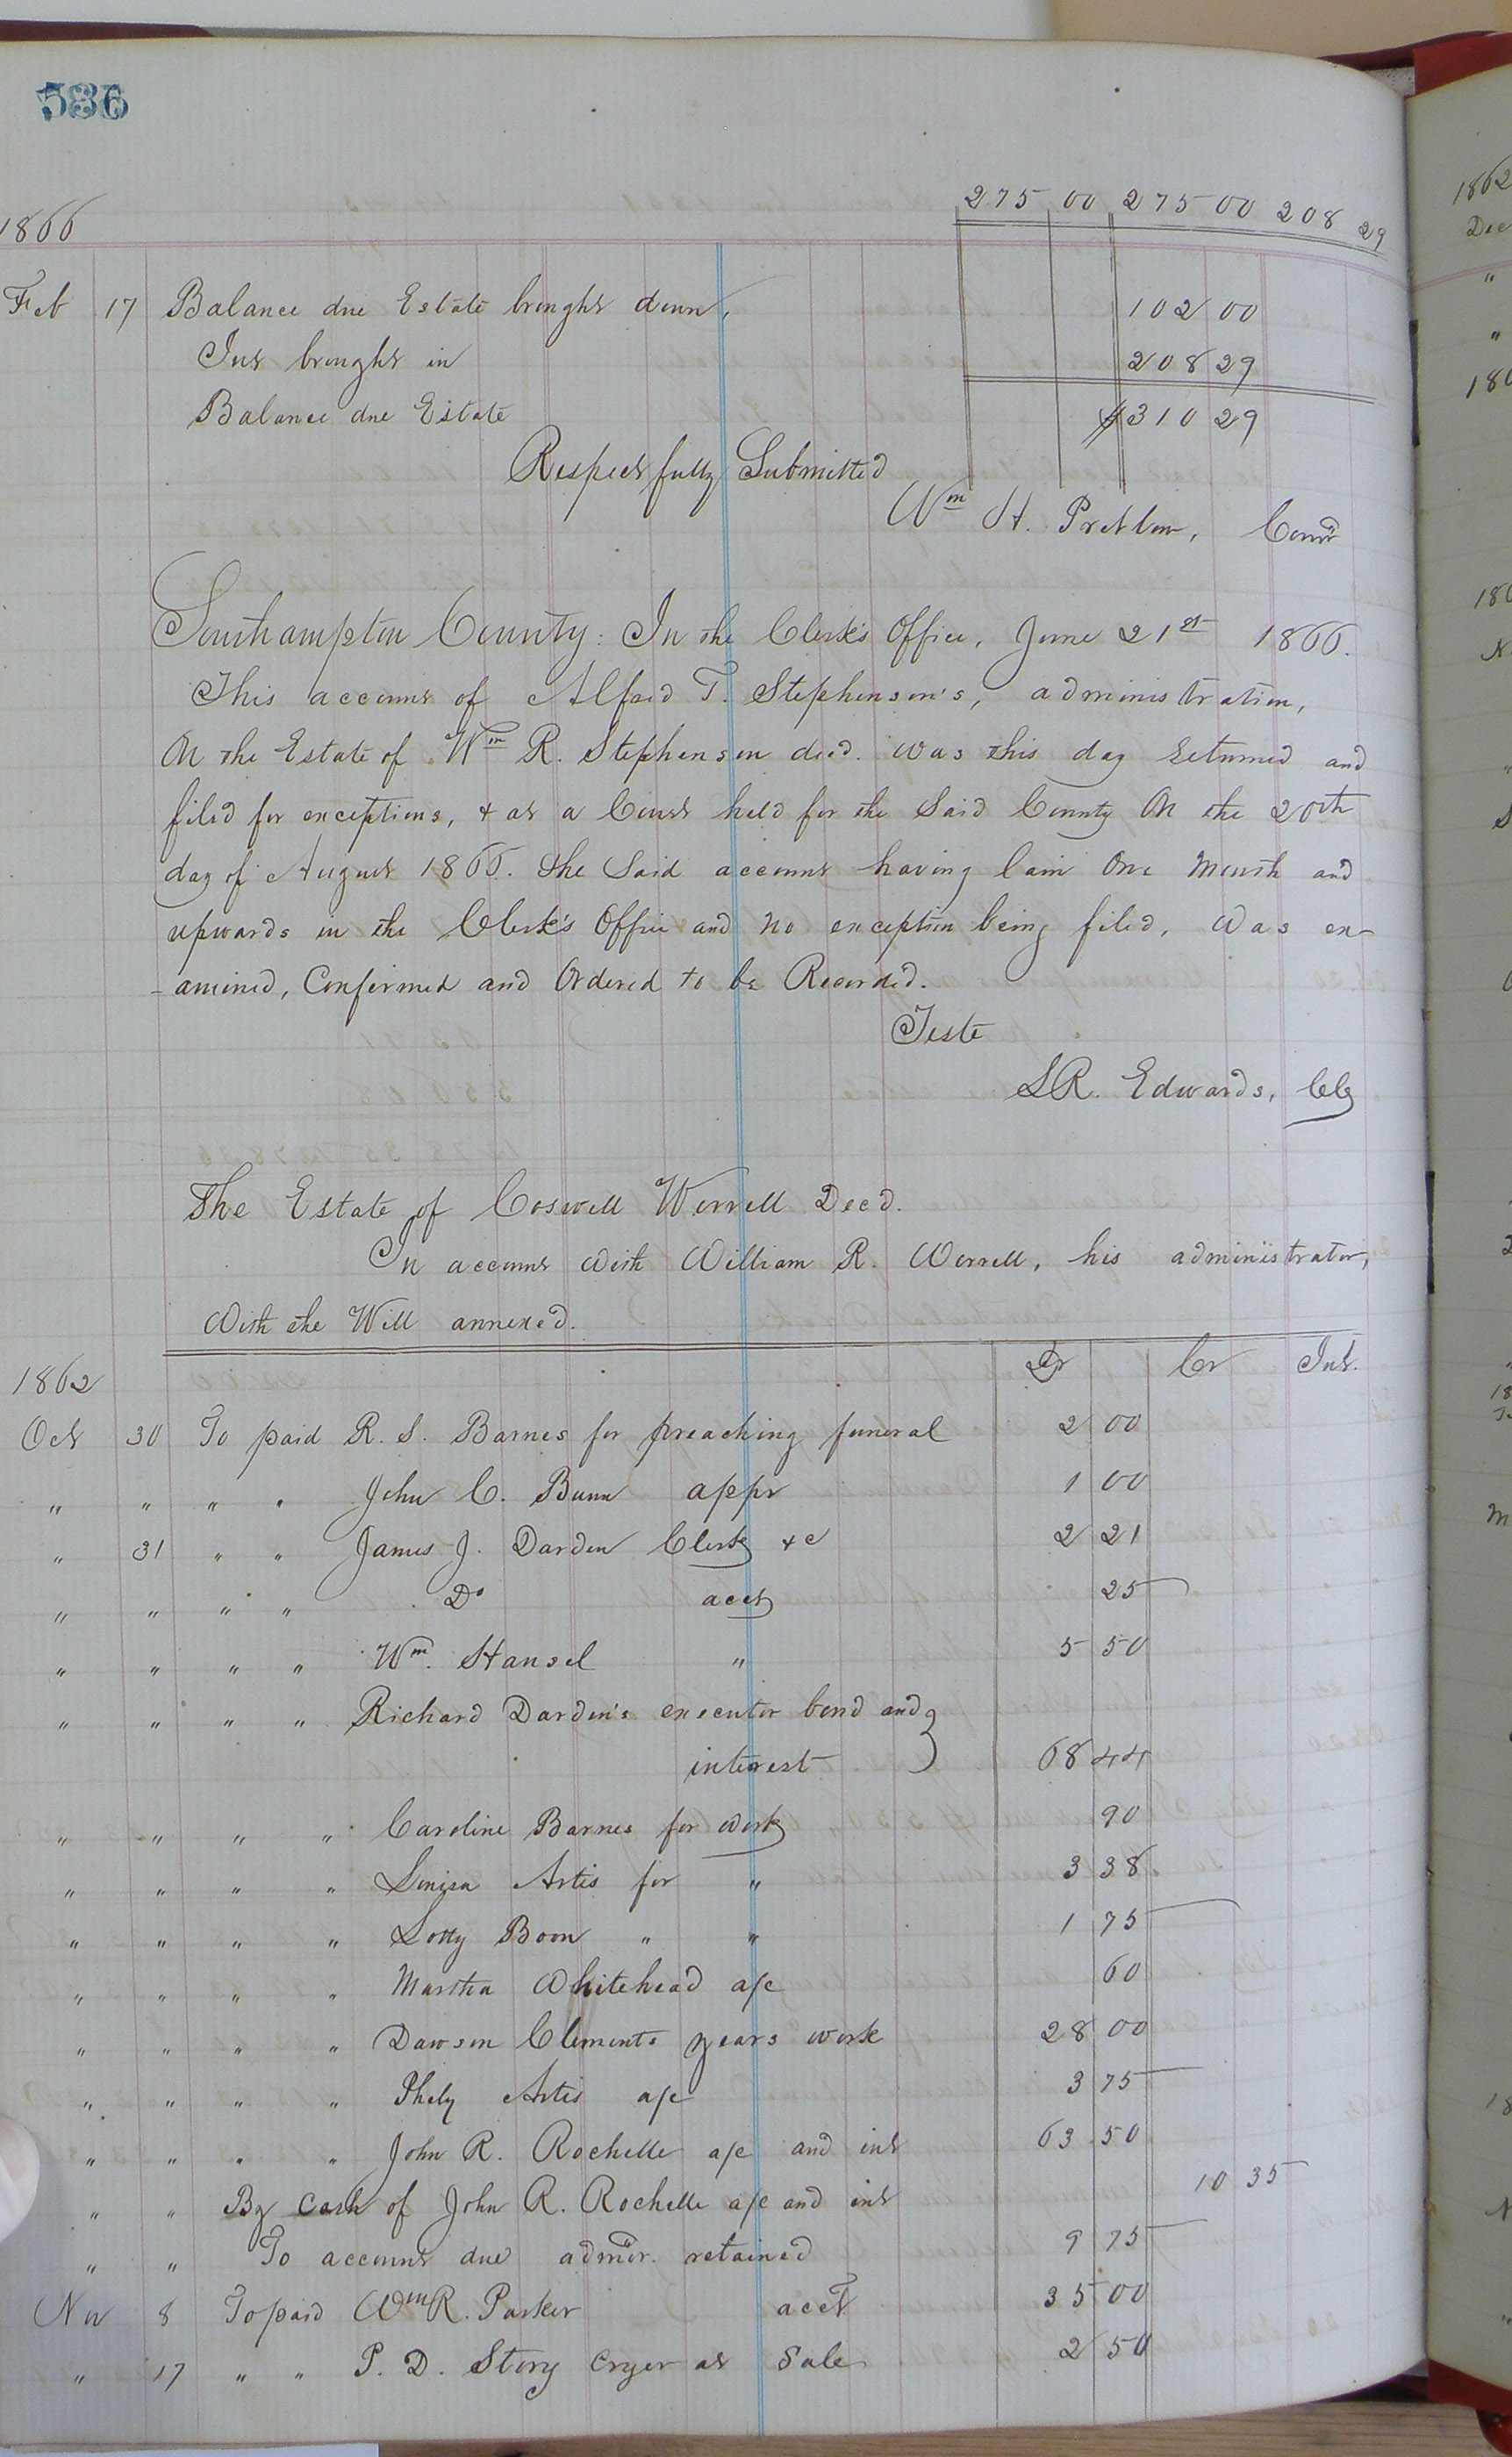 536
275 00 275 00 208 29
1866
Feb 17 Balance due Estate brought down, 102 00
Int brought in 208 29
Balance due Estate $310 29
Respectfully Submitted
Wm H. Pretlow, Comr
Southampton County: In the Clerk's Office, June 21st 1866.
This account of Alfred T. Stephenson's, administration,
On the Estate of Wm R. Stephenson decd. was this day returned and
filed for exceptions, & at a Court held for the Said County On the 20th
day of August 1866. the Said account having lain One Month and
upwards in the Clerk's Office and no exception being filed, Was ex-
-amined, Confirmed and Ordered to be Recorded.
Teste
LR. Edwards, Clk
The Estate of Coswell Worrell Decd.
In account With William R. Worrell, his administrator,
With the Will annexed.
Dr Cr Int.
1862
Oct 30 To paid R. S. Barnes for preaching funeral 2 00
" " " " John C. Bunn appr 1 00
" 31 " " James J. Darden Clerk &c 2 21
" " " " Do acct 25
" " " " Wm. Hansel " 5 50
" " " " Richard Darden's executor bond and
interest 68 44
" " " " Caroline Barnes for work 90
" " " " Louisa Artis for " 3 38
" " " " Lotty Boon " " 1 75
" " " " Martha Whitehead a/c 60
" " " " Dawson Clements years work 28 00
" " " " Phely Artis a/c 3 75
" " " " John R. Rochelle a/c and int 63 50
" " By cash of John R. Rochelle a/c and int 10 35
" " To account due admor. retained 9 75
Nov 8 To paid Wm R. Parker acct 35 00
" 17 " " P. D. Story cryer at Sale 2 50
1862
Dec
"
"